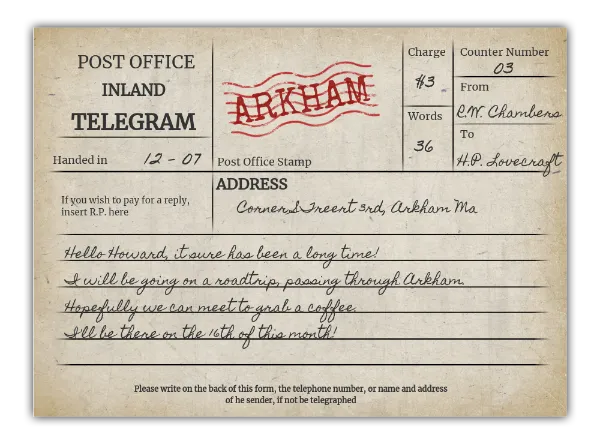 POST OFFICE
INLAND
TELEGRAM
Handed in 12 - 07
ARKHAM
Post Office Stamp
Charge
$3
Words
36
Counter Number
03
From
R.W. Chambers
To
H.P. Lovecraft
If you wish to pay for a reply,
insert R.P. here
ADDRESS
Corner&Treert 3rd, Arkham Ma
Hello Howard, it sure has been a long time!
I will be going on a roadtrip, passing through Arkham.
Hopefully we can meet to grab a coffee.
I'll be there on the 16th of this month!
Please write on the back of this form, the telephone number, or name and address
of he sender, if not be telegraphed